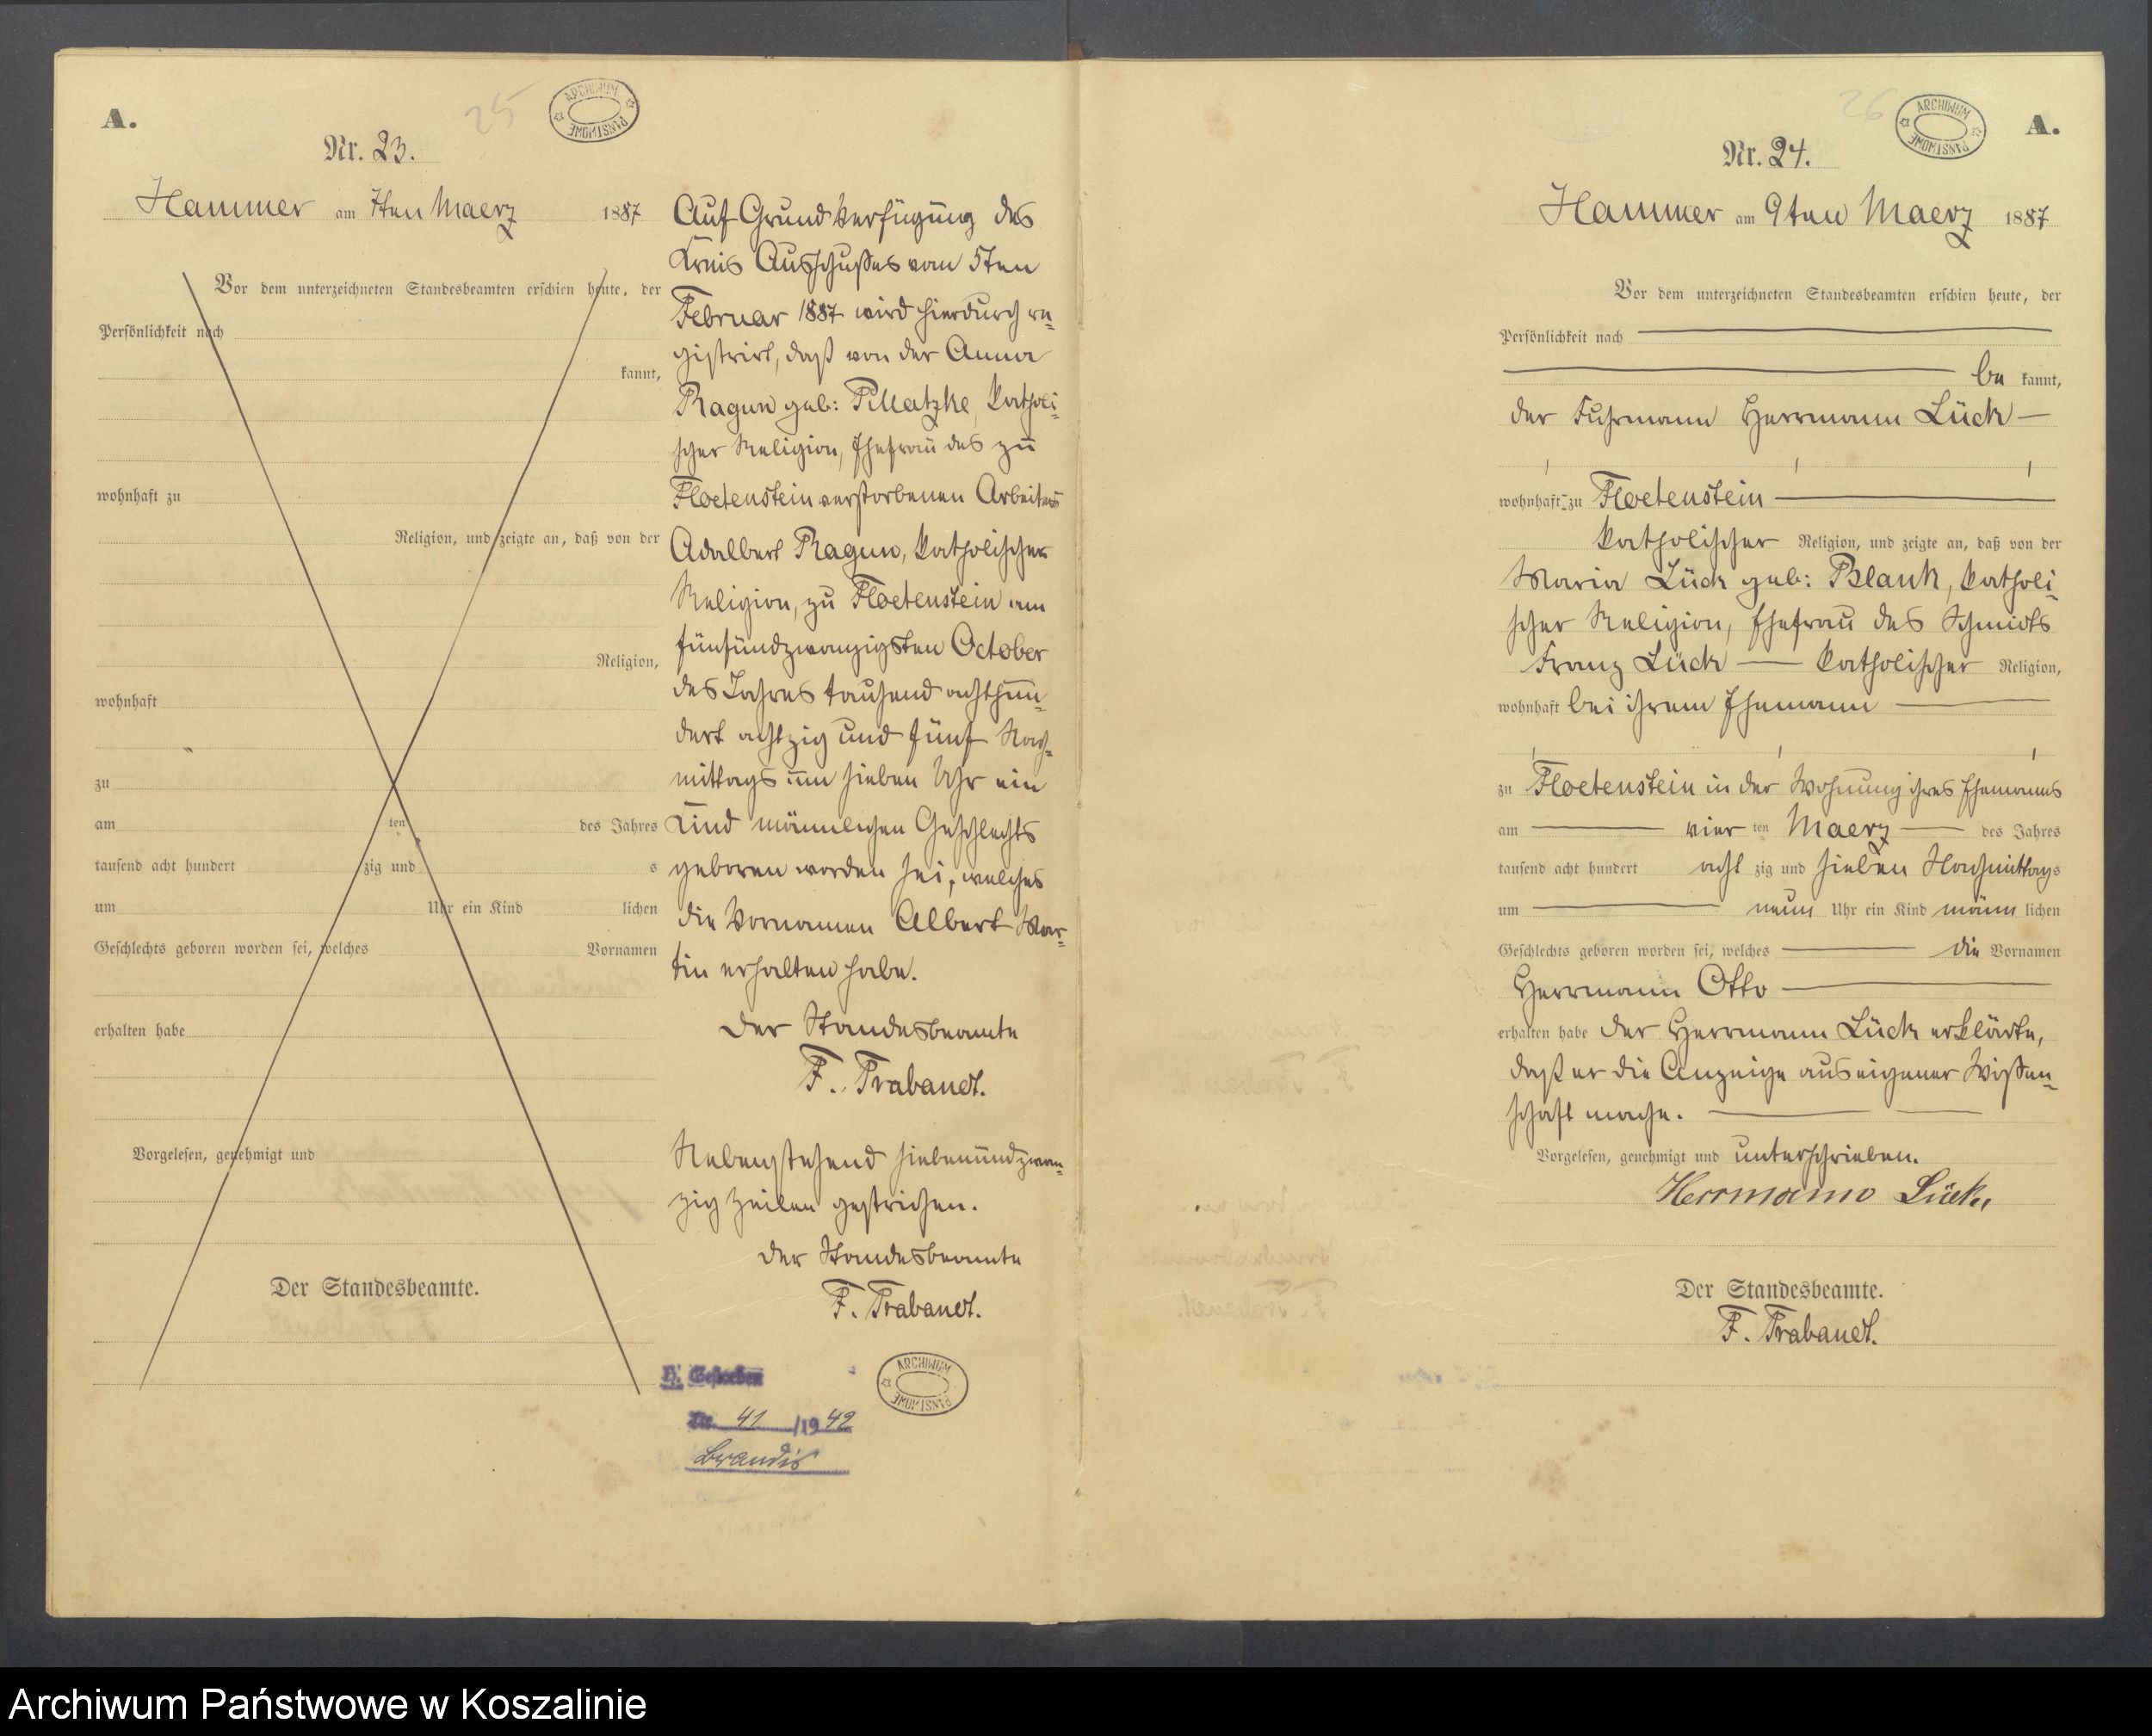 A.
25
ARCHIWUM PAŃSTWOWE
Nr. 23.
Hammer am 7ten Maerz 1887
Vor dem unterzeichneten Standesbeamten erschien heute, der
Persönlichkeit nach
kannt,
wohnhaft zu
Religion, und zeigte an, daß von der
Religion,
wohnhaft
zu
am ten des Jahres
tausend acht hundert zig und s
um Uhr ein Kind lichen
Geschlechts geboren worden sei, welches Vornamen
erhalten habe
Vorgelesen, genehmigt und
Der Standesbeamte.
Auf Grund Verfügung des
Kreis Ausschußes vom 5ten
Februar 1887 wird hierdurch re-
gistrirt, daß von der Anna
Ragun geb: Pillatzke, katholi-
scher Religion, Ehefrau des zu
Floetenstein verstorbenen Arbeiters
Adalbert Ragun, katholischer
Religion, zu Floetenstein am
fünfundzwanzigsten October
des Jahres tausend achthun-
dert achtzig und fünf Nach-
mittags um sieben Uhr ein
Kind männlichen Geschlechts
geboren worden sei, welches
die Vornamen Albert Mar-
tin erhalten habe.
Der Standesbeamte
F. Trabandt.
Nebenstehend siebenundzwan-
zig Zeilen gestrichen.
Der Standesbeamte
F. Trabandt.
Gestorben
Nr. 41 /1942
Brandis
ARCHIWUM PAŃSTWOWE
26
ARCHIWUM PAŃSTWOWE
A.
Nr. 24.
Hammer am 9ten Maerz 1887
Vor dem unterzeichneten Standesbeamten erschien heute, der
Persönlichkeit nach
be kannt,
der Fuhrmann Herrmann Lück
wohnhaft zu Floetenstein
katholischer Religion, und zeigte an, daß von der
Maria Lück geb: Blank, katholi-
scher Religion, Ehefrau des Schmids
Franz Lück katholischer Religion,
wohnhaft bei ihrem Ehemann
zu Floetenstein in der Wohnung ihres Ehemanns
am vier ten Maerz des Jahres
tausend acht hundert acht zig und sieben Nachmittags
um neun Uhr ein Kind männ lichen
Geschlechts geboren worden sei, welches die Vornamen
Herrmann Otto
erhalten habe der Herrmann Lück erklärte,
daß er die Anzeige aus eigener Wißen-
schaft mache.
Vorgelesen, genehmigt und unterschrieben.
Herrmann Lück
Der Standesbeamte.
F. Trabandt.
Archiwum Państwowe w Koszalinie